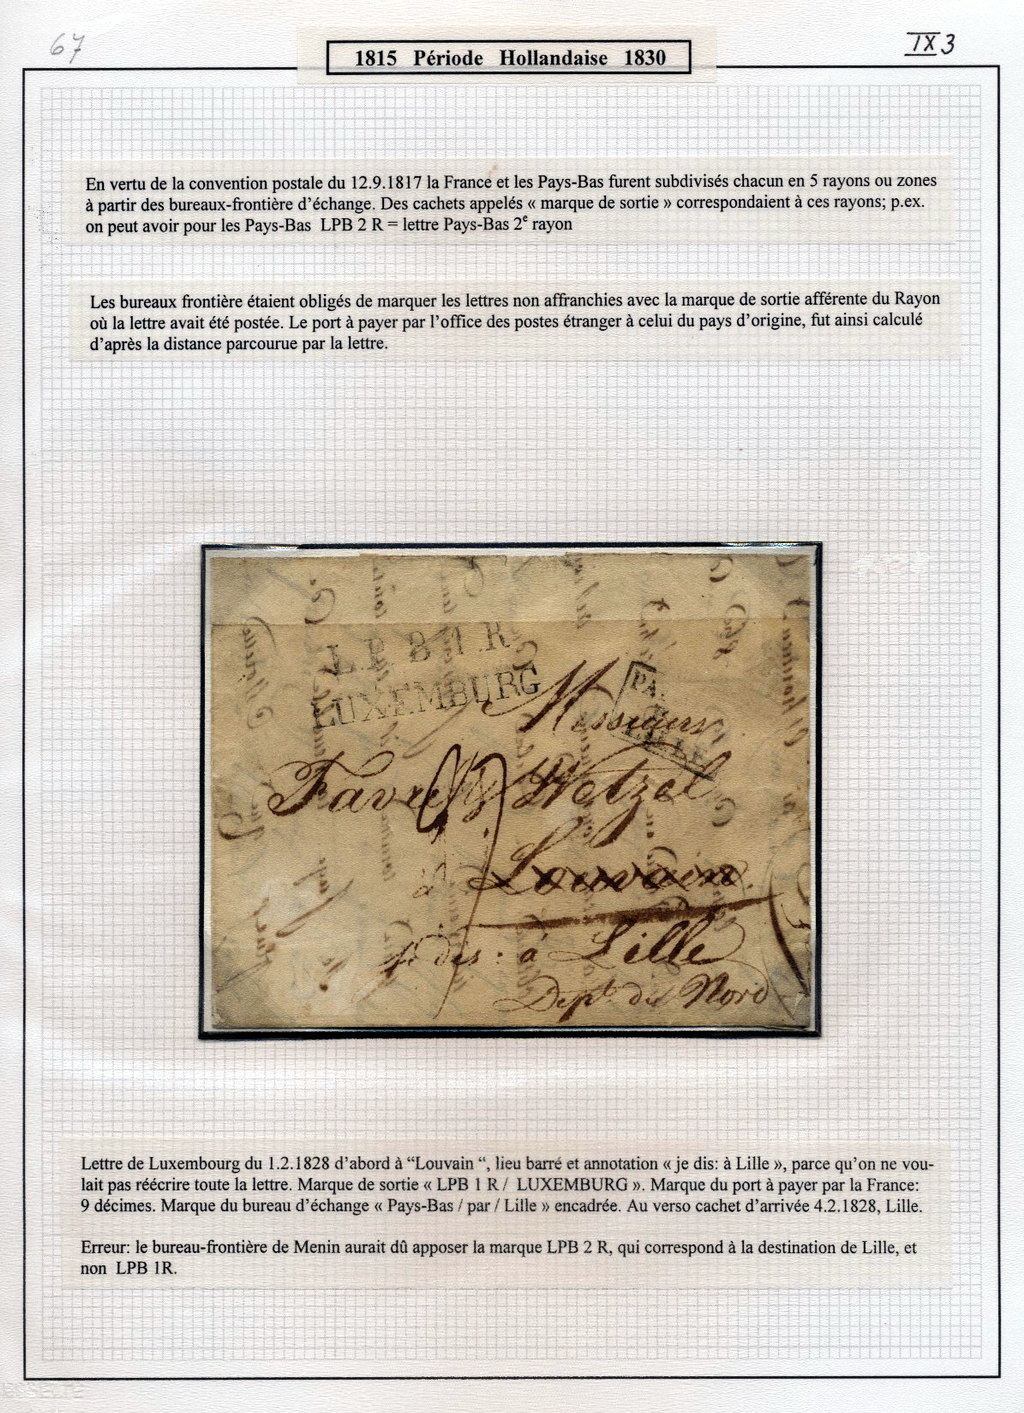 67
IX 3
1815 Période Hollandaise 1830
En vertu de la convention postale du 12.9.1817 la France et les Pays-Bas furent subdivisés chacun en 5 rayons ou zones
à partir des bureaux-frontière d'échange. Des cachets appelés « marque de sortie » correspondaient à ces rayons; p.ex.
on peut avoir pour les Pays-Bas LPB 2 R = lettre Pays-Bas 2e rayon
Les bureaux frontière étaient obligés de marquer les lettres non affranchies avec la marque de sortie afférente du Rayon
où la lettre avait été postée. Le port à payer par l'office des postes étranger à celui du pays d'origine, fut ainsi calculé
d'après la distance parcourue par la lettre.
L.P.B 1 R
LUXEMBURG
PA.
LILLE
Messieurs
Favre & Wetzel
à Louvain.
je dis: à Lille
Dept du Nord
Lettre de Luxembourg du 1.2.1828 d'abord à “Louvain “, lieu barré et annotation « je dis: à Lille », parce qu'on ne vou-
lait pas réécrire toute la lettre. Marque de sortie « LPB 1 R / LUXEMBURG ». Marque du port à payer par la France:
9 décimes. Marque du bureau d'échange « Pays-Bas / par / Lille » encadrée. Au verso cachet d'arrivée 4.2.1828, Lille.
Erreur: le bureau-frontière de Menin aurait dû apposer la marque LPB 2 R, qui correspond à la destination de Lille, et
non LPB 1R.